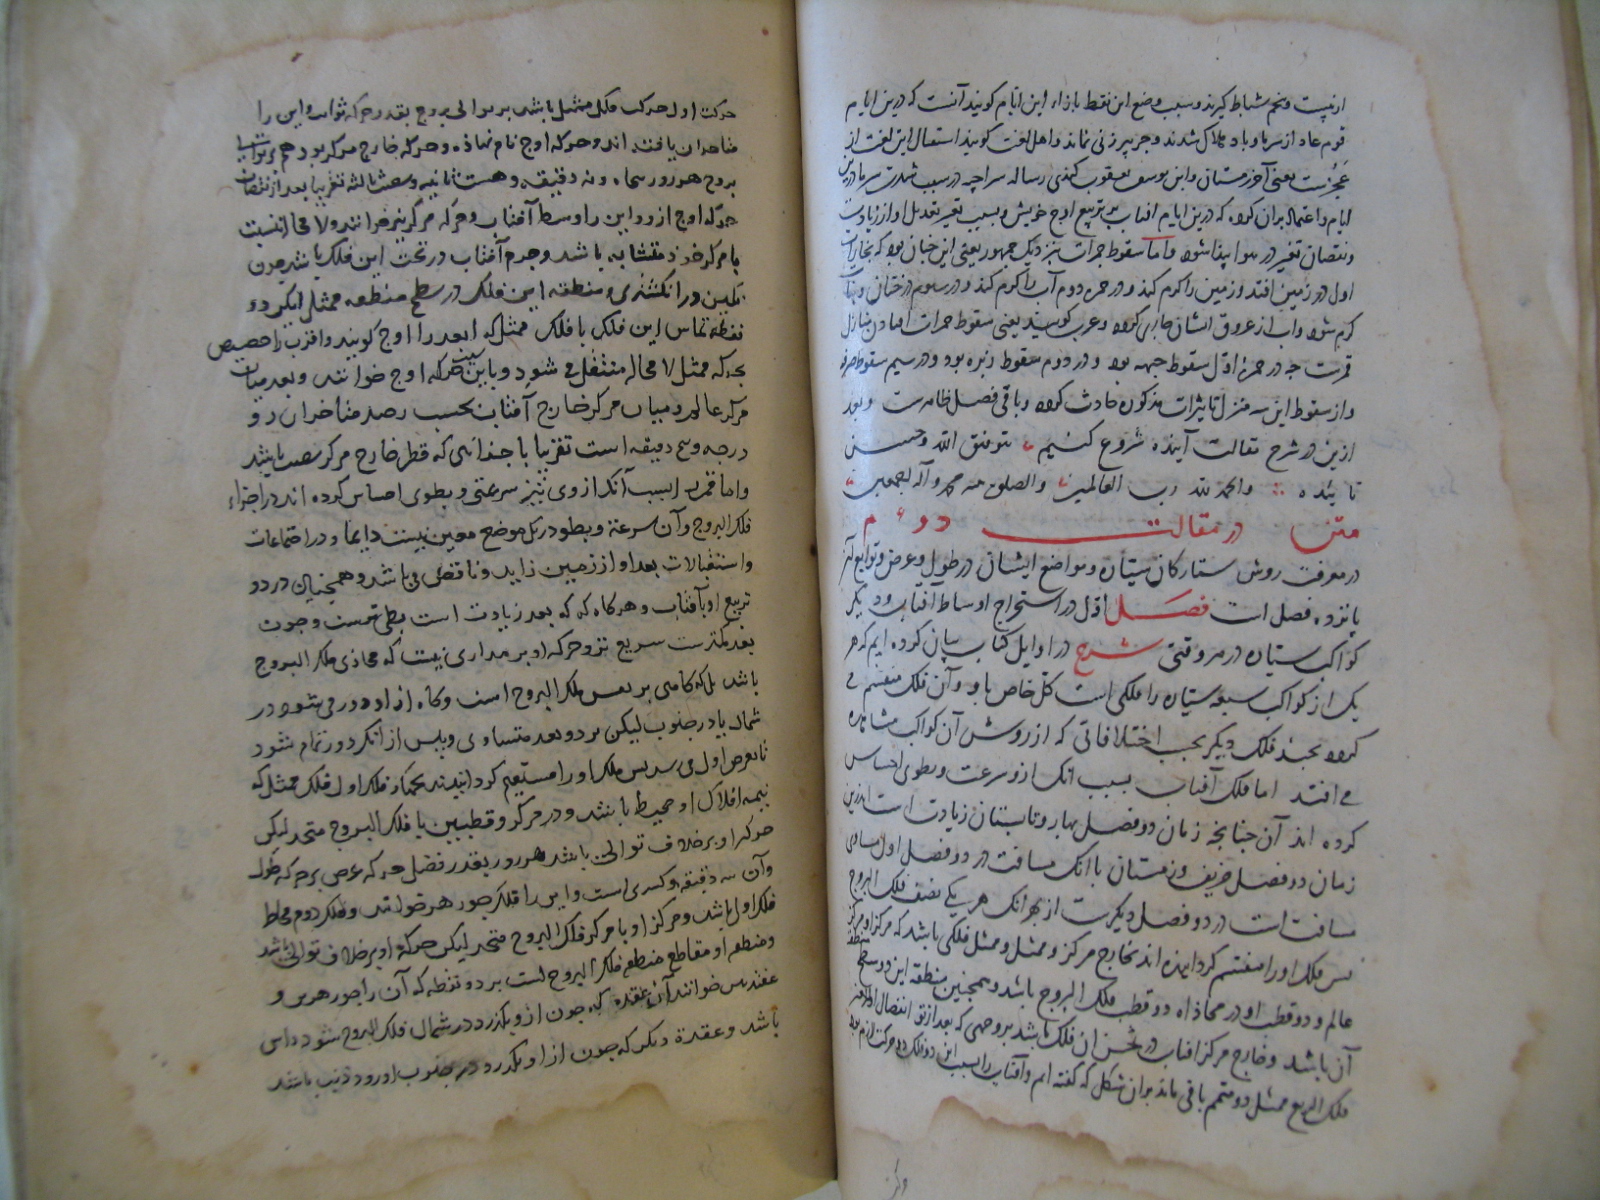 از بیست و پنجم شباط گیرند و سبب وضع این نقط بازاء این ایام گویند آنست که درین ایام
قوم عاد از سرما و باد هلاک شدند و جز پیر زنی نماند و اهل لغت گویند استعمال این لغت از
عجزست یعنی آخر زمستان و ابن یوسف یعقوب کندی رساله در سبب شدت سرما درین
ایام و اعتماد بران کرده که درین ایام آفتاب بتربیع اوج خویش و بسبب تغیر تعدیل او از زیادت
و نقصان تغیر در هوا پیدا شود و اما سقوط جمرات بنزدیک جمهور یعنی این چنان بود که بخارات
اول در زمین افتد و زمین را گرم کند و در جمره دوم آب را گرم کند و در سوم درختان و نبات
گرم شود و آب از عروق ایشان جاری گردد و عرب گویند یعنی سقوط جمرات افتادن منازل
قمرست چه در جمره اول سقوط جبهه بود و در دوم سقوط زبره بود و در سیم سقوط صرفه
و از سقوط این سه منزل تاثیرات مذکور حادث گردد و باقی فصل ظاهرست و بعد
ازین در شرح مقالت آینده شروع کنیم بتوفیق الله و حسن
تائیده والحمد لله رب العالمین والصلوة محمد و آله اجمعین
متن در مقالت دوم
در معرفت روش ستارگان سیاره و مواضع ایشان در طول و عرض و توابع آن
پانزده فصل است فصل اول در استخراج اوساط آفتاب و دیگر
کواکب سیاره در هر وقتی شرح در اوایل کتاب بیان کرده ایم که هر
یک از کواکب سبعه سیاره را فلکی است کلی خاص باو و آن فلک منقسم می
گردد بچند فلک دیگر بحسب اختلافاتی که از روش آن کواکب مشاهده
می افتد اما فلک آفتاب بسبب آنک ازو سرعت و بطوی احساس
کرده اند آن چنانچه زمان دو فصل بهار و تابستان زیادت است از
زمان دو فصل خریف و زمستان با آنک مسافت در دو فصل اول مساوی
مسافت است در دو فصل دیگرست از بهر آنک هر یکی نصف فلک البروج
پس فلک او را منقسم گردانیده اند بخارج مرکز و ممثل و ممثل فلکی باشد که مرکز او مرکز
عالم و دو قطب او در محاذاه دو قطب فلک البروج باشد و همچنین منطقه این دو سطح
آن باشد و خارج مرکز آفتاب در ثخن آن فلک باشد بر وجهی که بعد از انفصال
فلک ممثل دو متمم باقی ماند بران شکل که گفته ایم و آفتاب را بسبب این دو فلک دو حرکت لازم بود
حرکت اول حرکت فلک ممثل باشد بر توالی بروج بقدر حرکت ثوابت و این را
متاخران یافته اند و حرکه اوج نام نهاده و حرکه خارج مرکز بود هم بر توالی
بروج هر روز پنجاه و نه دقیقه و هشت ثانیه و ثالثه تقریبا بعد از نقصان
حرکه اوج ازو و این را وسط آفتاب و حرکه مرکز نیز خوانند و لا محاله نسبت
با مرکز خود متشابه باشد و جرم آفتاب در ثخن این فلک باشد چون
نگین در انگشتری و منطقه این فلک در سطح منطقه ممثل لیکن دو
نقطه تماس این فلک با فلک ممثل که ابعد را اوج گویند و اقرب را حضیض
بحرکه ممثل لا محاله منتقل می شود و باین حرکه اوج خوانند و بعد میان
مرکز عالم و میان مرکز خارج آفتاب بحسب رصد متأخران دو
درجه و دقیقه است تقریبا باجزائی که قطر خارج مرکز شصت باشد
و اما قمر بسبب آنک از وی نیز سرعتی و بطوی احساس کرده اند در اجزاء
فلک البروج و آن سرعة و بطو در یک موضع معین نیست دایما و در اجتماعات
و استقبالات بعد او از زمین زاید و ناقص می باشد و همچنین در دو
تربیع او بآفتاب و هرگاه که بعد زیادت است بطی ترست و چون
بعد کمترست سریع تر و حرکه او بر مداری نیست که محاذی فلک البروج
باشد بلکه گاهی بر نفس فلک البروج است و گاه از او دور می شود در
شمال یا در جنوب لیکن بر دو بعد متساوی و پس از آنک دور تمام شود
تا بعرض اول می رسد پس فلک او را منقسم گردانیدند بچهار فلک اول فلک ممثل که
بهمه افلاک او محیط باشد و در مرکز و قطبین با فلک البروج متحد لیکن
حرکه او بر خلاف توالی باشد هر روز بقدر فضل حرکه عرض بر حرکه طول
و آن سه دقیقه و کسری است و این را فلک جوزهر خوانند و فلک دوم مماس
فلک اول باشد و مرکز او با مرکز فلک البروج متحد لیکن حرکه او بر خلاف توالی باشد
و منطقه او مقاطع منطقه فلک البروج است بر دو نقطه که آن را جوزهرین و
عقدتین خوانند آن عقده که چون ازو بگذرد در شمال فلک البروج شود راس
باشد و عقده دیگر که چون از او بگذرد در جنوب او رود ذنب باشد